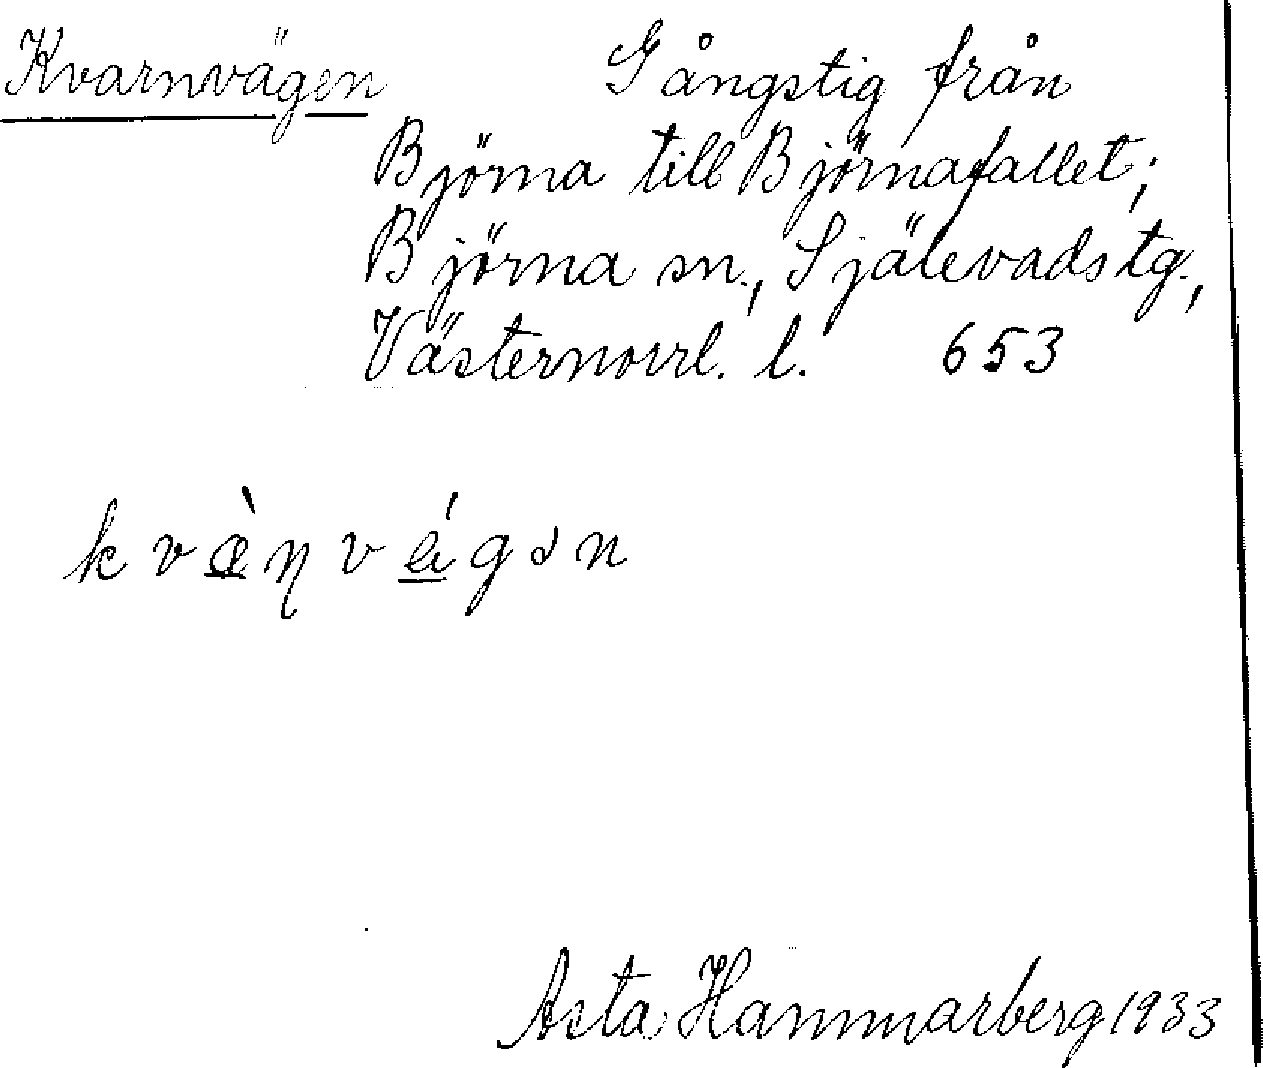 Kvarnvägen Gångstig från
Björna till Björnafallet;
Björna sn., Själevads tg.,
Västernorrl. l. 653
kvæ̠̀ɳvé̠gən
Asta Hammarberg 1933